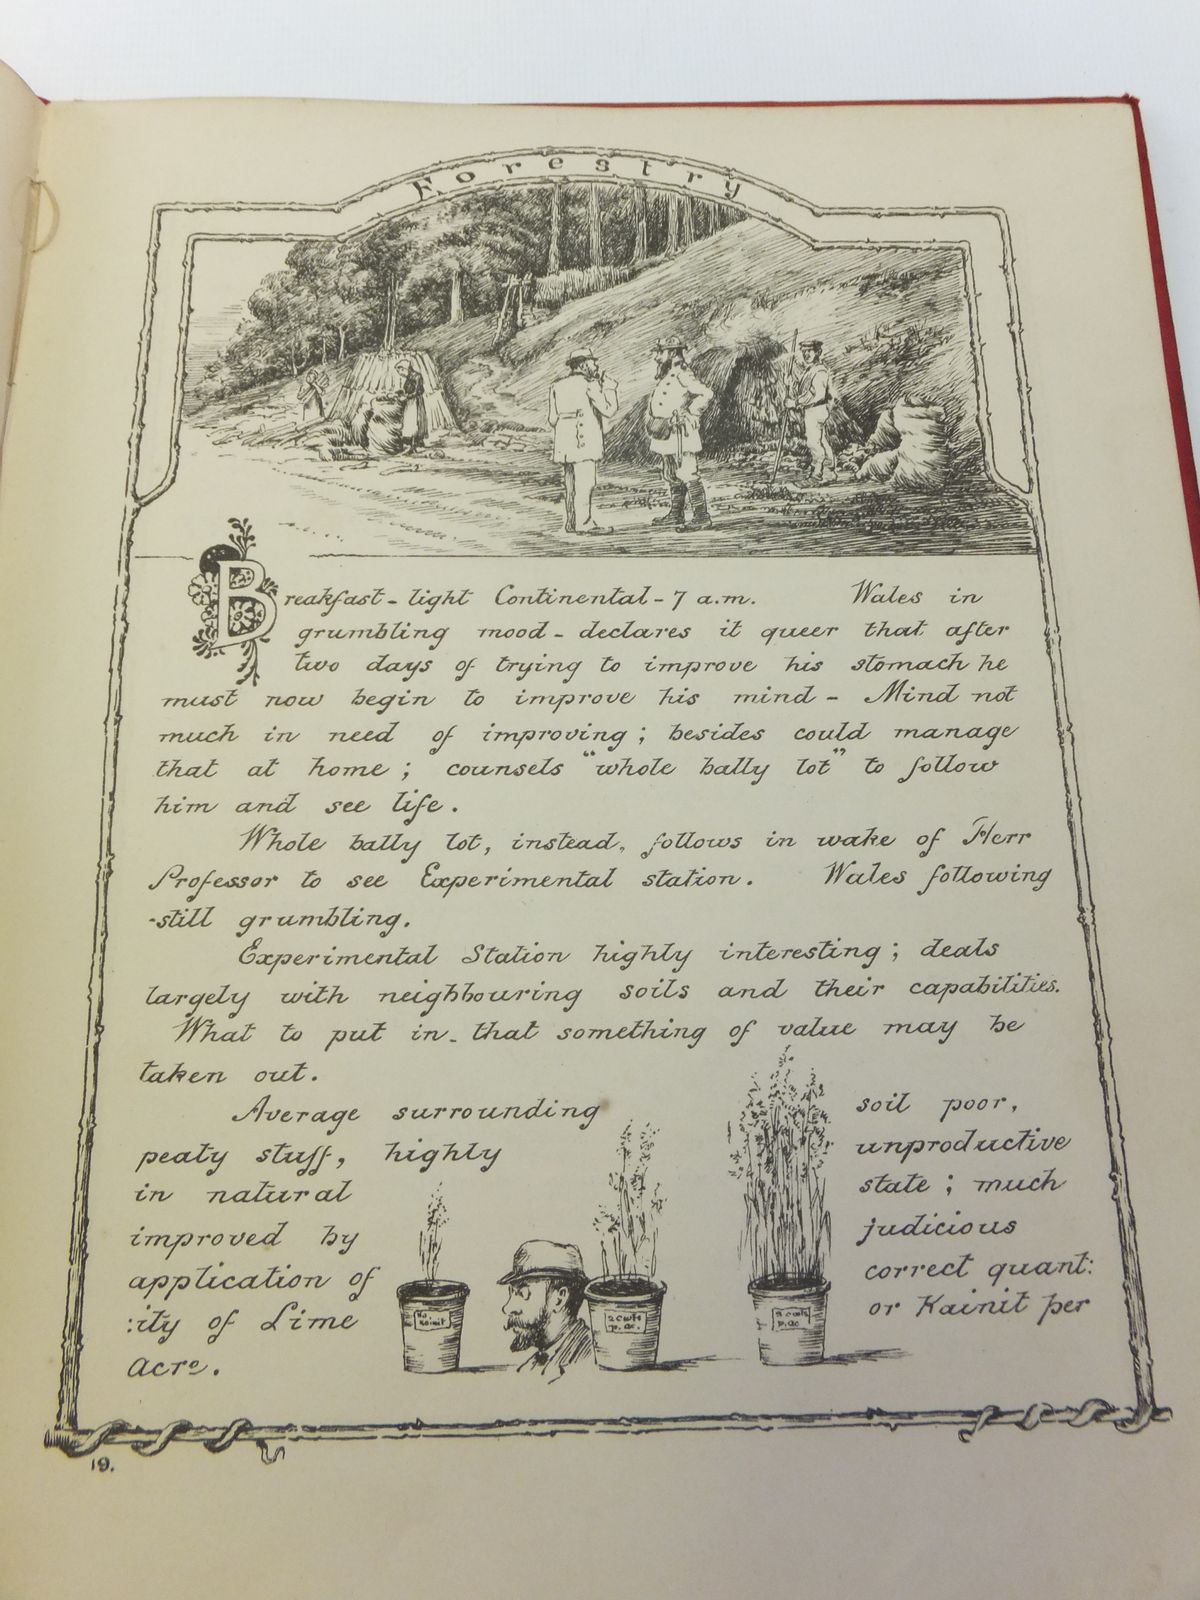 Forestry
Breakfast - light Continental - 7 a.m. Wales in
grumbling mood - declares it queer that after
two days of trying to improve his stomach he
must now begin to improve his mind - Mind not
much in need of improving ; besides could manage
that at home ; counsels "whole bally lot" to follow
him and see life.
Whole bally lot, instead, follows in wake of Herr
Professor to see Experimental station. Wales following
-still grumbling.
Experimental Station highly interesting ; deals
largely with neighbouring soils and their capabilities.
What to put in - that something of value may be
taken out.
Average surrounding soil poor,
peaty stuff, highly unproductive
in natural state ; much
improved by judicious
application of correct quant:
:ity of Lime or Kainit per
acre.
No Kainit
2 cwts p. ac.
8 cwts p. ac
19.